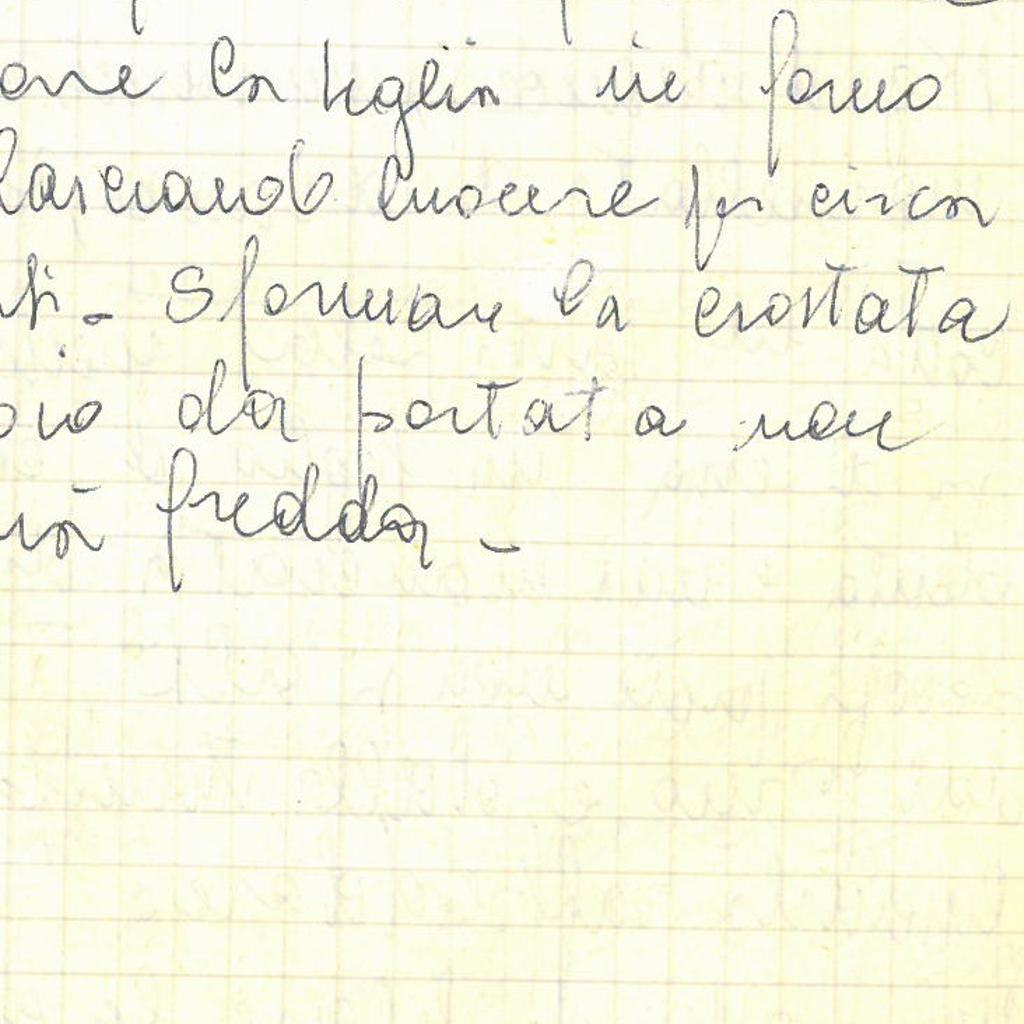 la teglia in forno
lasciando cuocere per circa
Sformare la crostata
da portata non
fredda -